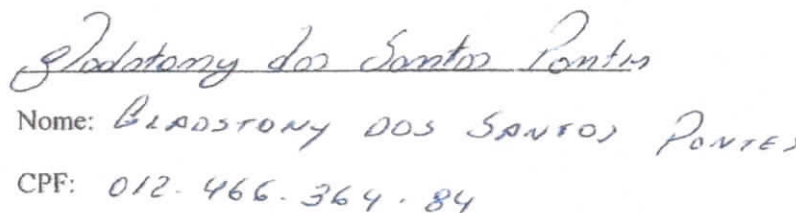 Gladstony dos Santos Pontes
Nome: GLADSTONY DOS SANTOS PONTES
CPF: 012.466.364.84